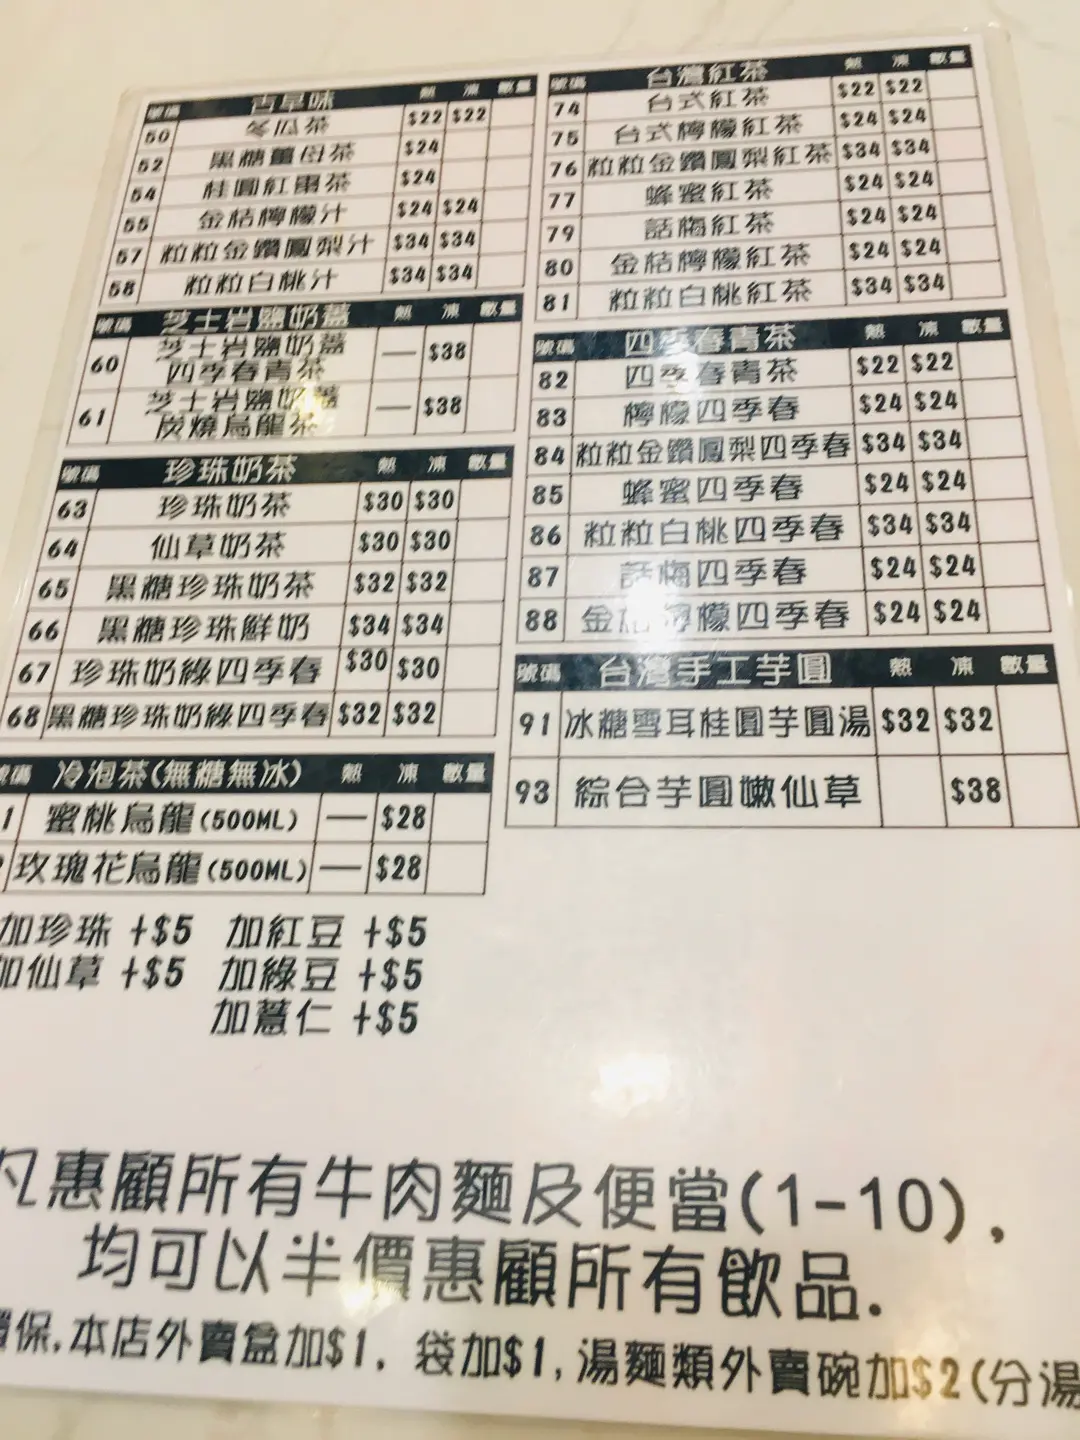 號碼 古早味 熱 凍 數量
50 冬瓜茶 $22 $22
52 黑糖薑母茶 $24
54 桂圓紅棗茶 $24
55 金桔檸檬汁 $24 $24
57 粒粒金鑽鳳梨汁 $34 $34
58 粒粒白桃汁 $34 $34
號碼 芝士岩鹽奶蓋 熱 凍 數量
60 芝士岩鹽奶蓋
四季春青茶 — $38
61 芝士岩鹽奶蓋
炭燒烏龍茶 — $38
號碼 珍珠奶茶 熱 凍 數量
63 珍珠奶茶 $30 $30
64 仙草奶茶 $30 $30
65 黑糖珍珠奶茶 $32 $32
66 黑糖珍珠鮮奶 $34 $34
67 珍珠奶綠四季春 $30 $30
68 黑糖珍珠奶綠四季春 $32 $32
號碼 冷泡茶(無糖無冰) 熱 凍 數量
1 蜜桃烏龍(500ML) — $28
玫瑰花烏龍(500ML) — $28
加珍珠 +$5 加紅豆 +$5
加仙草 +$5 加綠豆 +$5
加薏仁 +$5
號碼 台灣紅茶 熱 凍 數量
74 台式紅茶 $22 $22
75 台式檸檬紅茶 $24 $24
76 粒粒金鑽鳳梨紅茶 $34 $34
77 蜂蜜紅茶 $24 $24
79 話梅紅茶 $24 $24
80 金桔檸檬紅茶 $24 $24
81 粒粒白桃紅茶 $34 $34
號碼 四季春青茶 熱 凍 數量
82 四季春青茶 $22 $22
83 檸檬四季春 $24 $24
84 粒粒金鑽鳳梨四季春 $34 $34
85 蜂蜜四季春 $24 $24
86 粒粒白桃四季春 $34 $34
87 話梅四季春 $24 $24
88 金桔檸檬四季春 $24 $24
號碼 台灣手工芋圓 熱 凍 數量
91 冰糖雪耳桂圓芋圓湯 $32 $32
93 綜合芋圓嫩仙草 $38
凡惠顧所有牛肉麵及便當(1-10),
均可以半價惠顧所有飲品.
環保,本店外賣盒加$1, 袋加$1,湯麵類外賣碗加$2(分湯